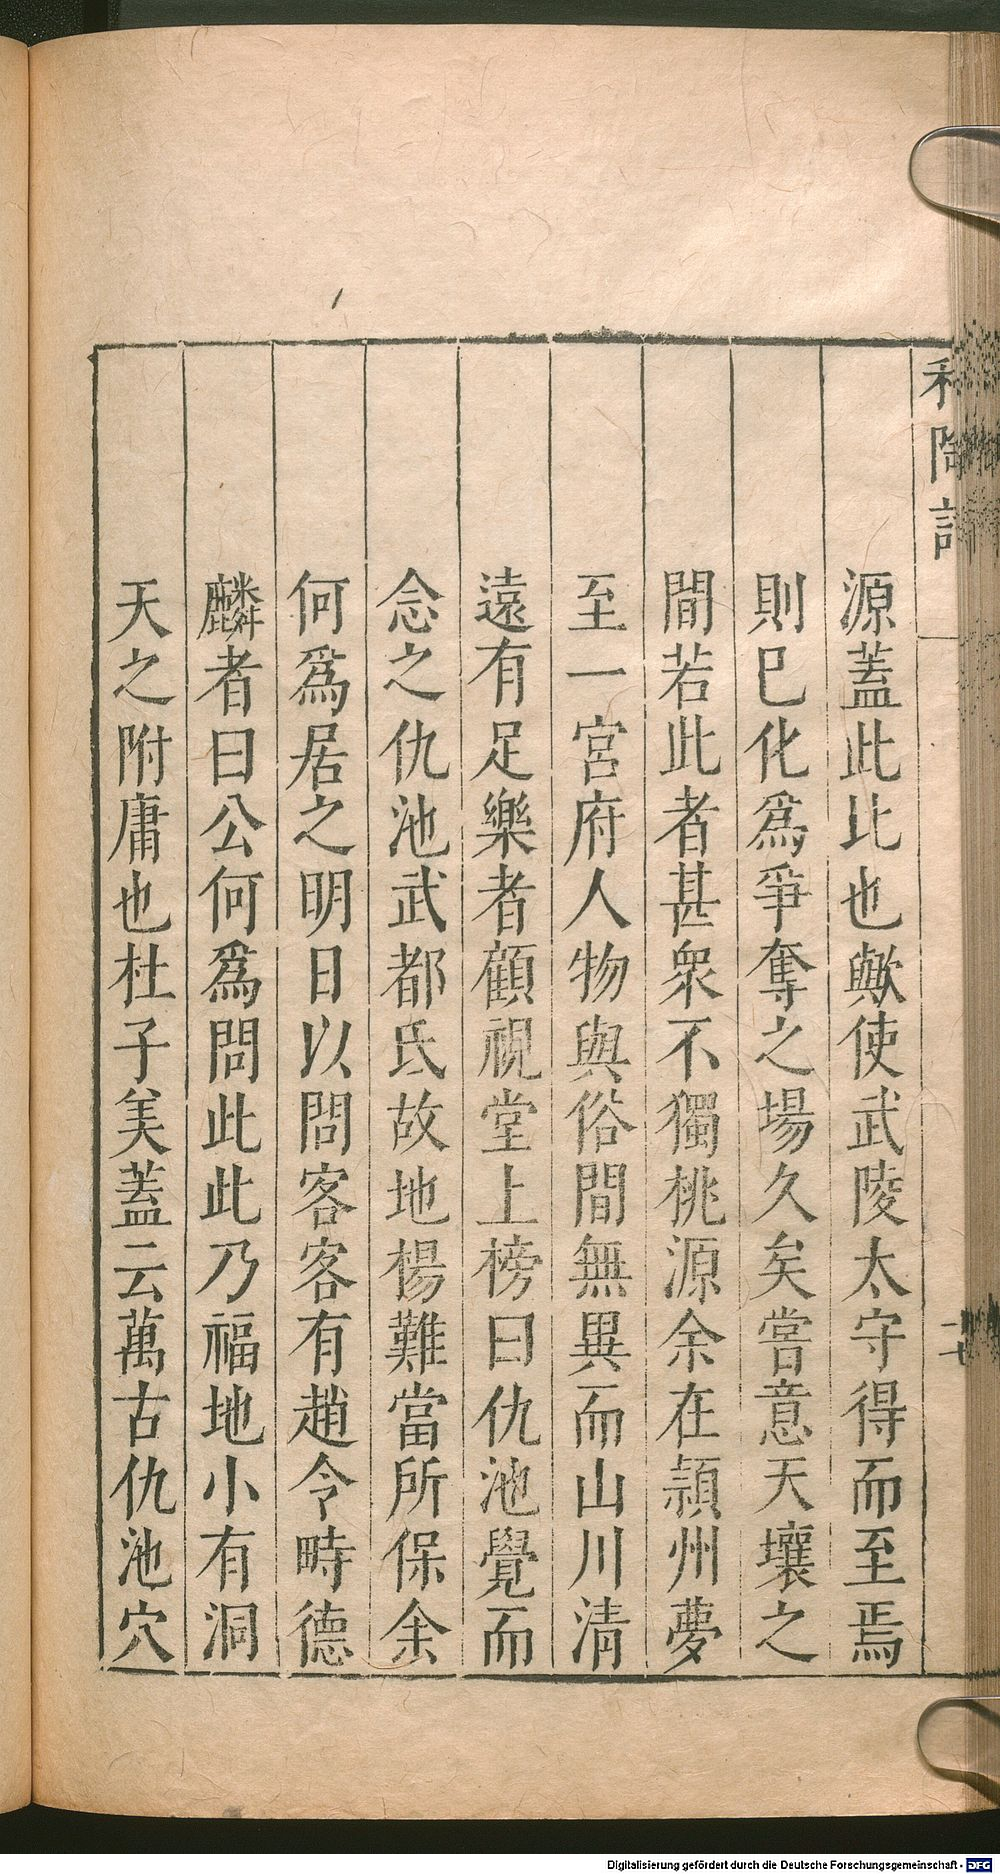 和陶詩
二十
源蓋此比也歟使武陵太守得而至焉
則已化爲爭奪之場久矣嘗意天壤之
間若此者甚衆不獨桃源余在潁州夢
至一宮府人物與俗間無異而山川清
遠有足樂者顧視堂上榜曰仇池覺而
念之仇池武都氐故地楊難當所保余
何爲居之明日以問客客有趙令畤德
麟者曰公何爲問此此乃福地小有洞
天之附庸也杜子美蓋云萬古仇池穴
Digitalisierung gefördert durch die Deutsche Forschungsgemeinschaft - DFG